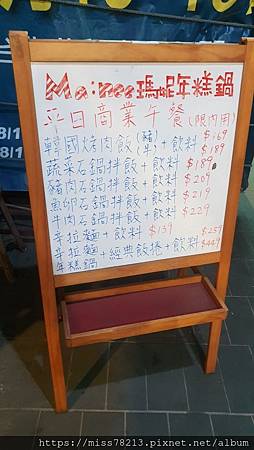 Mainee瑪妮年糕鍋
平日商業午餐(限內用)
韓國烤肉飯(豬 牛)+飲料 $169 $189
蔬菜石鍋拌飯+飲料 $189
豬肉石鍋拌飯+飲料 $209
魚卵石鍋拌飯+飲料 $219
牛肉石鍋拌飯+飲料 $229
辛拉麵+飲料 $139
辛拉麵
年糕鍋+經典飯捲+飲料 $259 $449
https://miss78213.pixnet.net/album